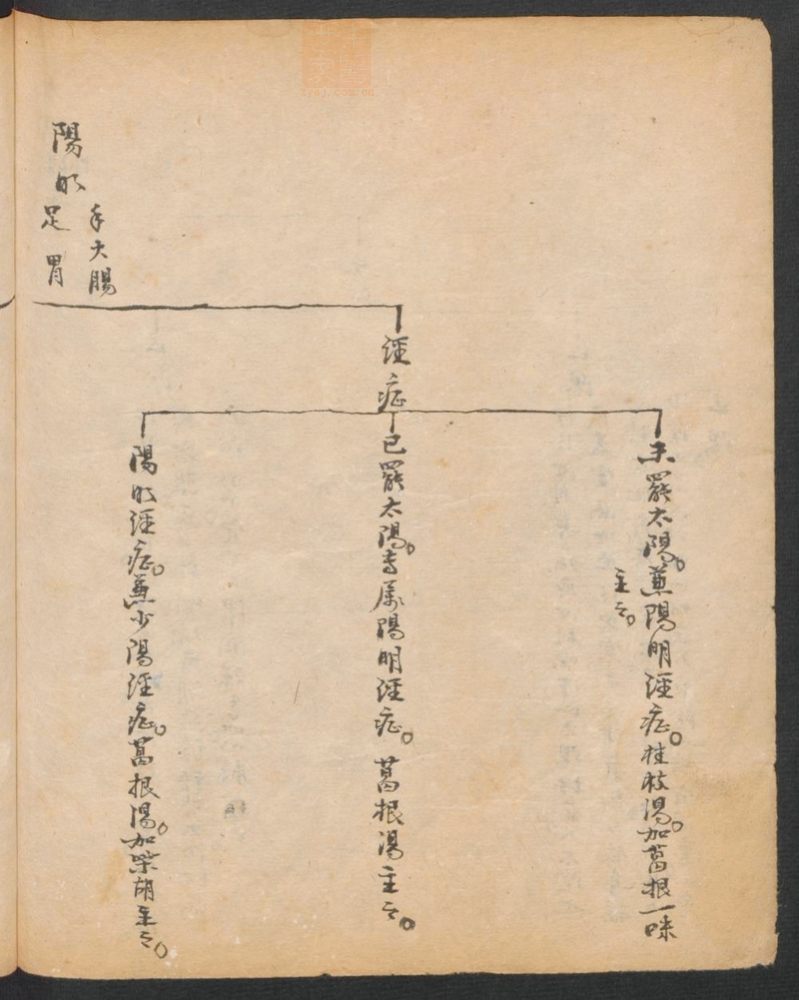 陽明
手大腸
足胃
經症
未罷太陽。兼陽明經症。桂枝湯。加葛根一味
主之。
已罷太陽。專屬陽明經症。葛根湯主之。
陽明經症。兼少陽經症。葛根湯。加柴胡主之。